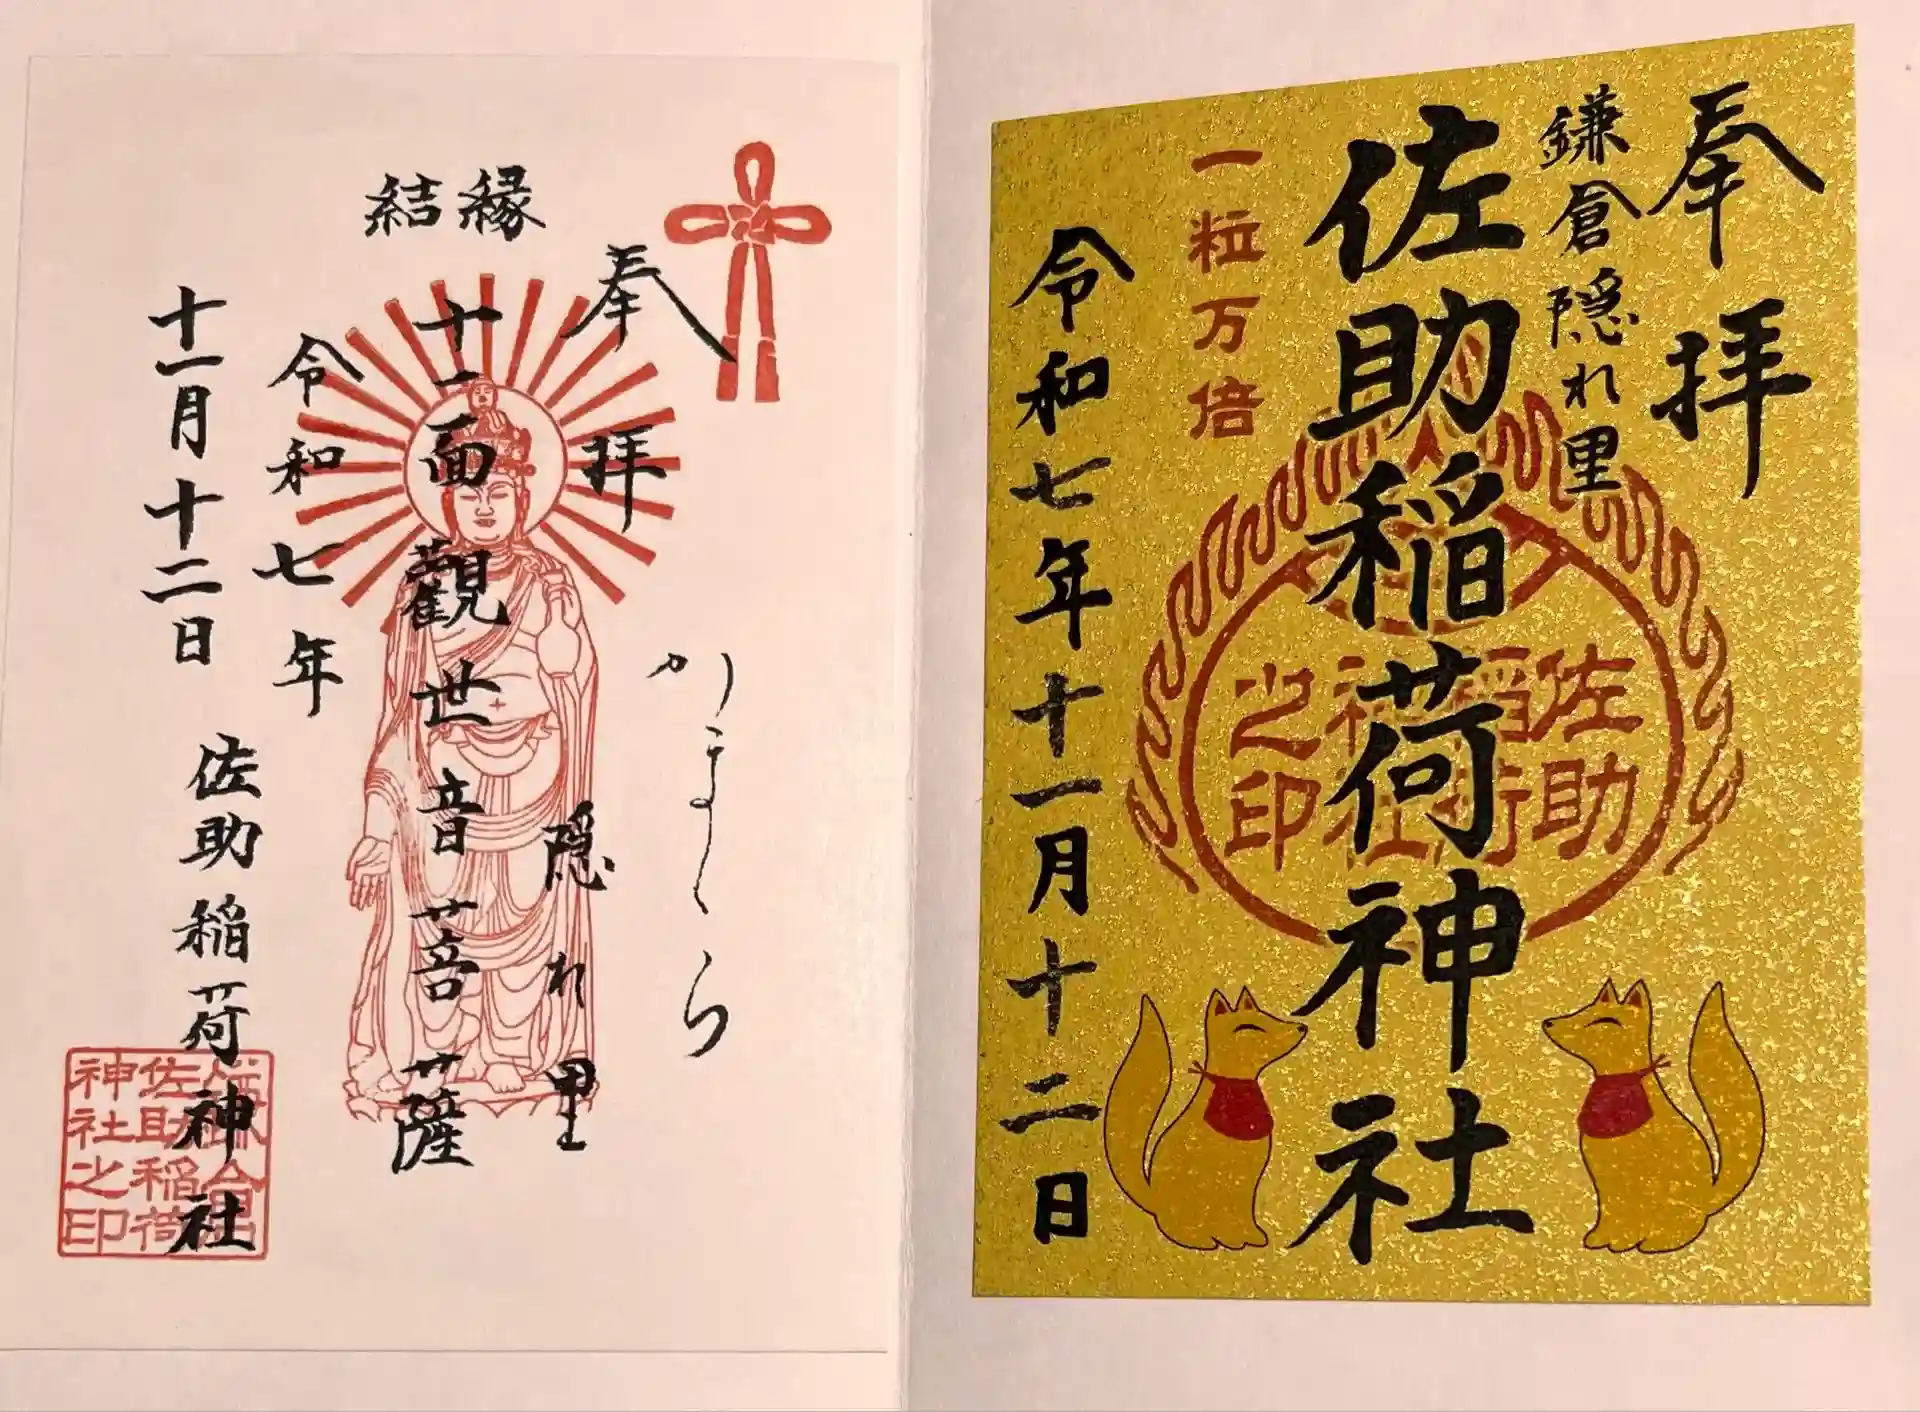 奉拝
鎌倉隠れ里
佐助稲荷神社
一粒万倍
令和七年十一月十二日
佐助
稲荷
神社
之印
縁結
奉拝
かまくら
隠れ里
十一面觀世音菩薩
令和七年
十一月十二日
佐助稲荷神社
佐助稲荷
神社之印